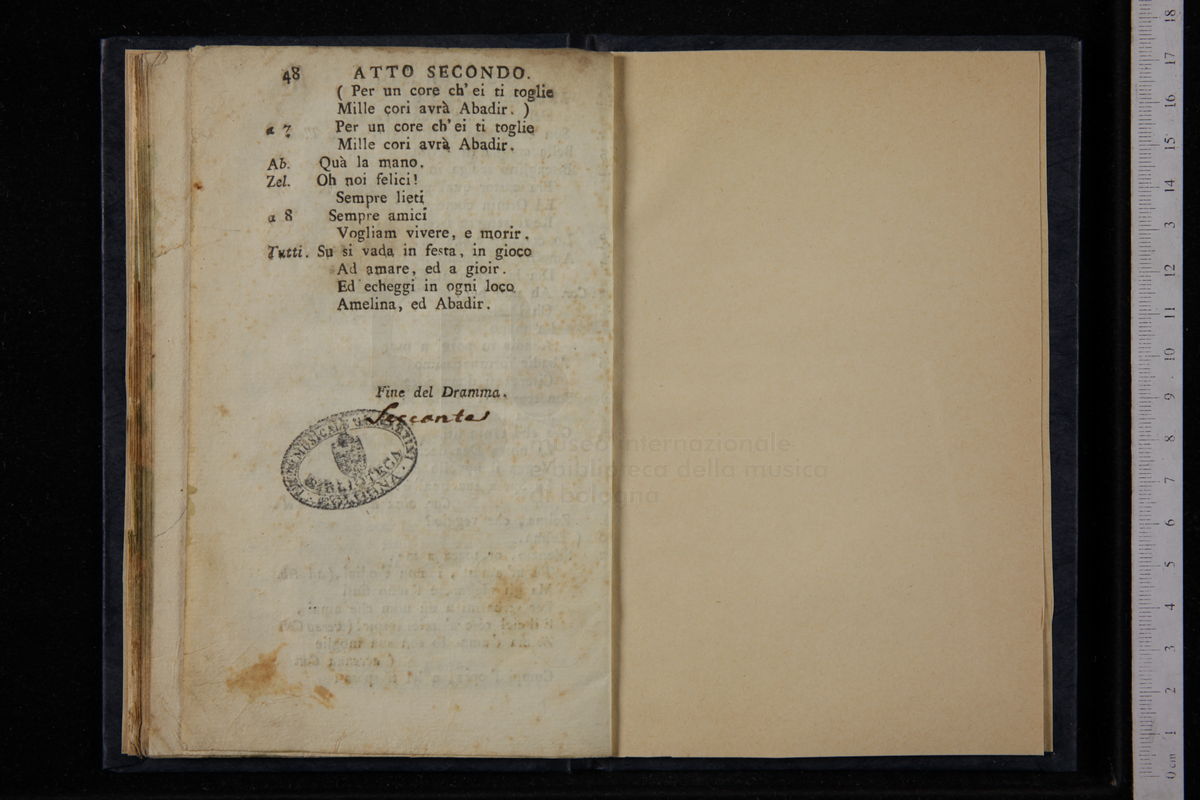 48 ATTO SECONDO.
( Per un core ch' ei ti toglie
Mille cori avrà Abadir. )
a 7 Per un core ch' ei ti toglie
Mille cori avrà Abadir.
Ab. Quà la mano.
Zel. Oh noi felici!
Sempre lieti
a 8 Sempre amici
Vogliam vivere, e morir.
Tutti. Su si vada in festa, in gioco
Ad amare, ed a gioir.
Ed echeggi in ogni loco
Amelina, ed Abadir.
Fine del Dramma.
LICEO MUSICALE G. B. MARTINI
BIBLIOTECA
BOLOGNA
museo internazionale
e biblioteca della musica
di bologna
18
17
16
15
14
13
12
11
10
9
8
7
6
5
4
3
2
1
0 cm